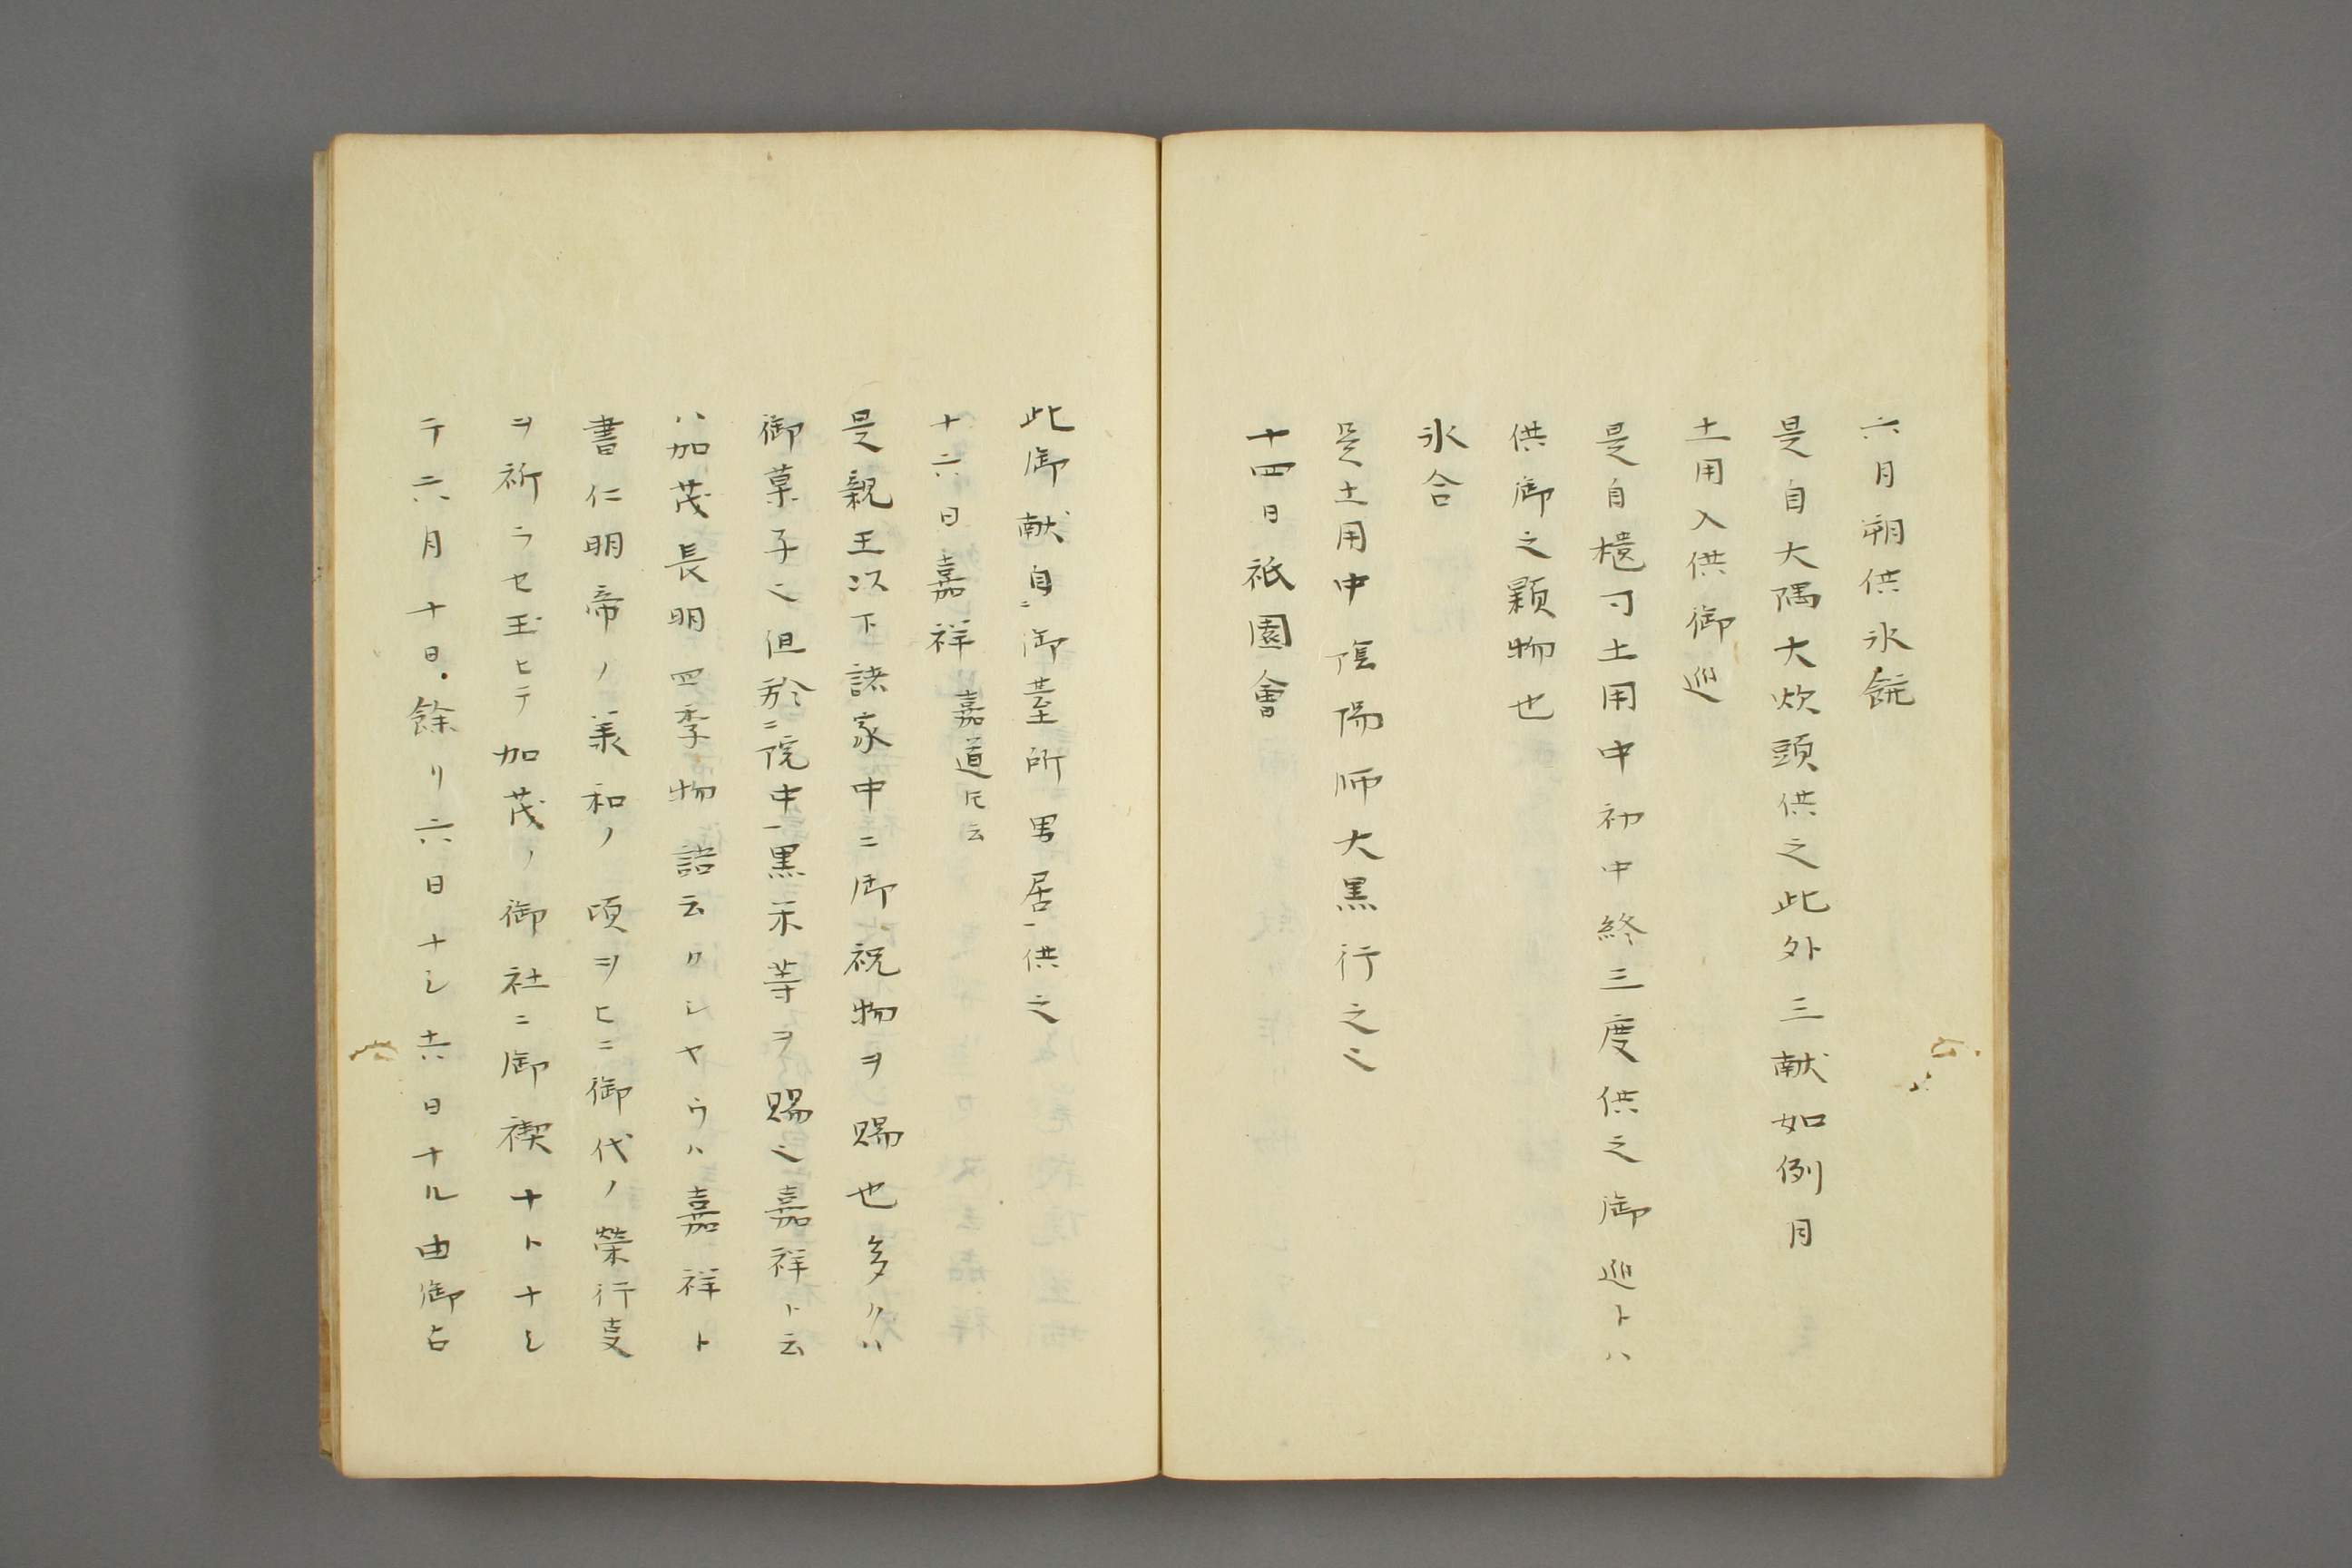 六月朔供氷餅
是自大隅大炊頭供之此外三献如例月
土用入供御廵
是自櫃司土用中初中終三度供之御廵トハ
供御之顆物也
氷合
是土用中陰陽師大黒行之〻
十四日祇園會
此御献自ニ御臺所男居一供之
十六日嘉祥 嘉道圧云
是親王以下諸家中ニ御祝物ヲ賜也多クハ
御菓子之但於ニ院中一黒米等ヲ賜之嘉祥ト云
ハ加茂長明四季物語云クシヤウハ嘉祥ト
書仁明帝ノ義和ノ頃ヲヒニ御代ノ榮行叓
ヲ祈ラセ玉ヒテ加茂ノ御社ニ御禊ナトナシ
テ六月十日餘リ六日ナシ十六日ナル由御占